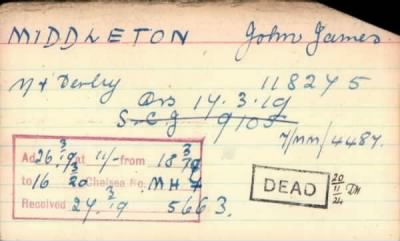 MIDDLETON John James
N & Derby 118245
Dis 14.3.19
S.C.J 9105
7/MM/4487.
Ad 26.3.19 at 11/- from 18 3 19
to 16 3 20 Chelsea No. MH 7
Received 24.3.19 5663.
DEAD 20 11 24